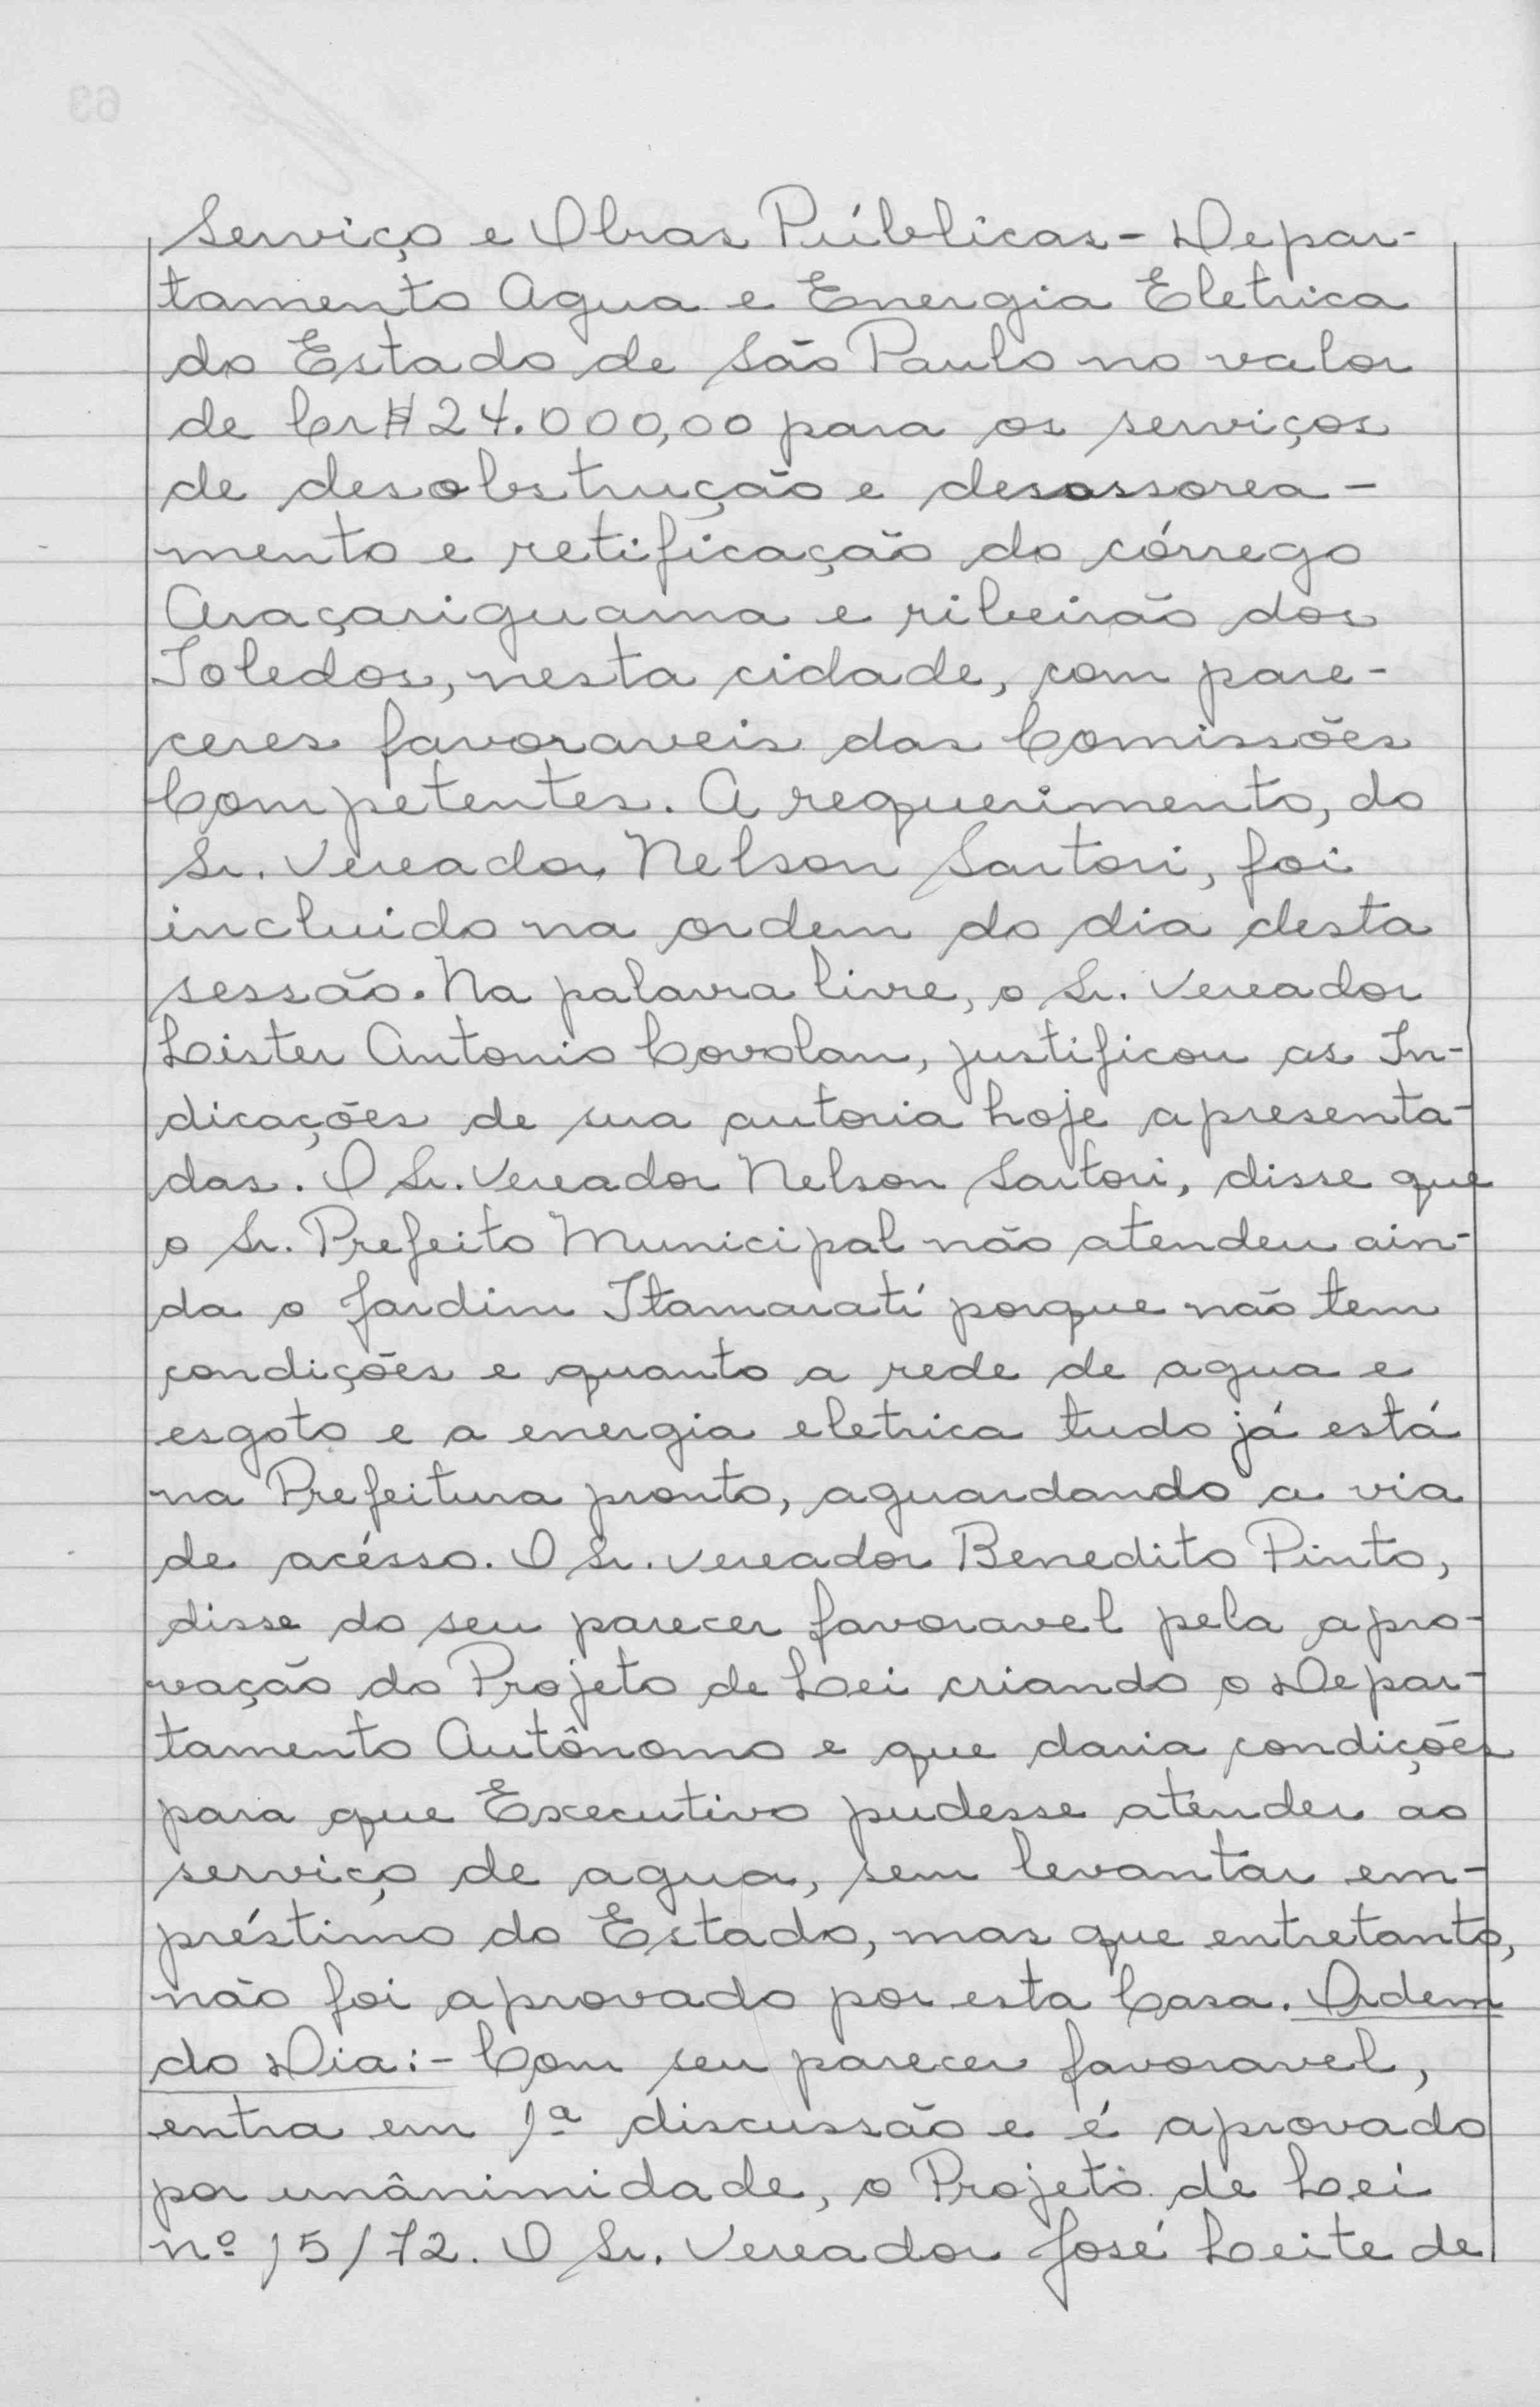 Serviço e Obras Públicas - Depar-
tamento Agua e Energia Eletrica
do Estado de São Paulo no valor
de Cr$ 24.000,00 para os serviços
de desobstrução e desassorea-
mento e retificação do córrego
Araçariguama e ribeirão dos
Toledos, nesta cidade, com pare-
ceres favoraveis das Comissões
Competentes. A requerimento, do
Sr. Vereador Nelson Sartori, foi
incluido na ordem do dia desta
sessão. Na palavra livre, o Sr. Vereador
Lister Antonio Covolan, justificou as In-
dicações de sua autoria hoje apresenta-
das. O Sr. Vereador Nelson Sartori, disse que
o Sr. Prefeito Municipal não atendeu ain-
da o Jardim Itamaratí porque não tem
condições e quanto a rede de agua e
esgoto e a energia eletrica tudo já está
na Prefeitura pronto, aguardando a via
de acésso. O Sr. vereador Benedito Pinto,
disse do seu parecer favoravel pela apro-
vação do Projeto de Lei criando o Depar-
tamento Autônomo e que daria condições
para que Executivo pudesse atender ao
serviço de agua, sem levantar em-
préstimo do Estado, mas que entretanto,
não foi aprovado por esta Casa. Ordem
do Dia:- Com seu parecer favoravel,
entra em 1ª discussão e é aprovado
por unânimidade, o Projeto de Lei
nº 15/72. O Sr. Vereador José Leite de